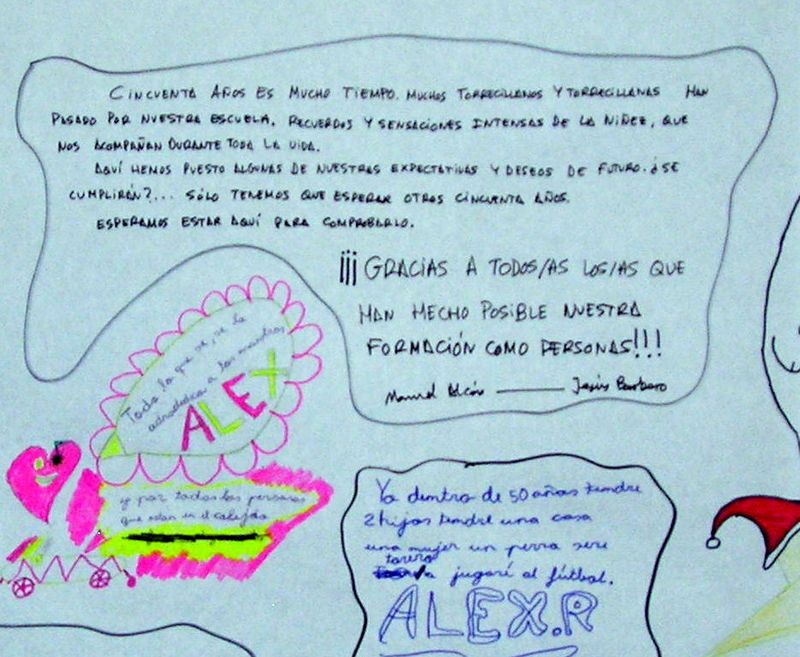 CINCUENTA AÑOS ES MUCHO TIEMPO. MUCHOS TORRECILLANOS Y TORRECILLANAS HAN
PASADO POR NUESTRA ESCUELA. RECUERDOS Y SENSACIONES INTENSAS DE LA NIÑEZ, QUE
NOS ACOMPAÑAN DURANTE TODA LA VIDA.
AQUÍ HEMOS PUESTO ALGUNAS DE NUESTRAS EXPECTATIVAS Y DESEOS DE FUTURO. ¿SE
CUMPLIRÁN?... SÓLO TENEMOS QUE ESPERAR OTROS CINCUENTA AÑOS.
ESPERAMOS ESTAR AQUÍ PARA COMPROBARLO.
¡¡¡GRACIAS A TODOS/AS LOS/AS QUE
HAN HECHO POSIBLE NUESTRA
FORMACIÓN COMO PERSONAS!!!
Manuel Jesús
Todo lo que se, se la
a los maestros
ALEX
y por todas las personas
que estan en el colegio
Yo dentro de 50 años tendre
2 hijos tendré una casa
una mujer un perro sere
torero
jugaré al fútbol.
ALEX.R